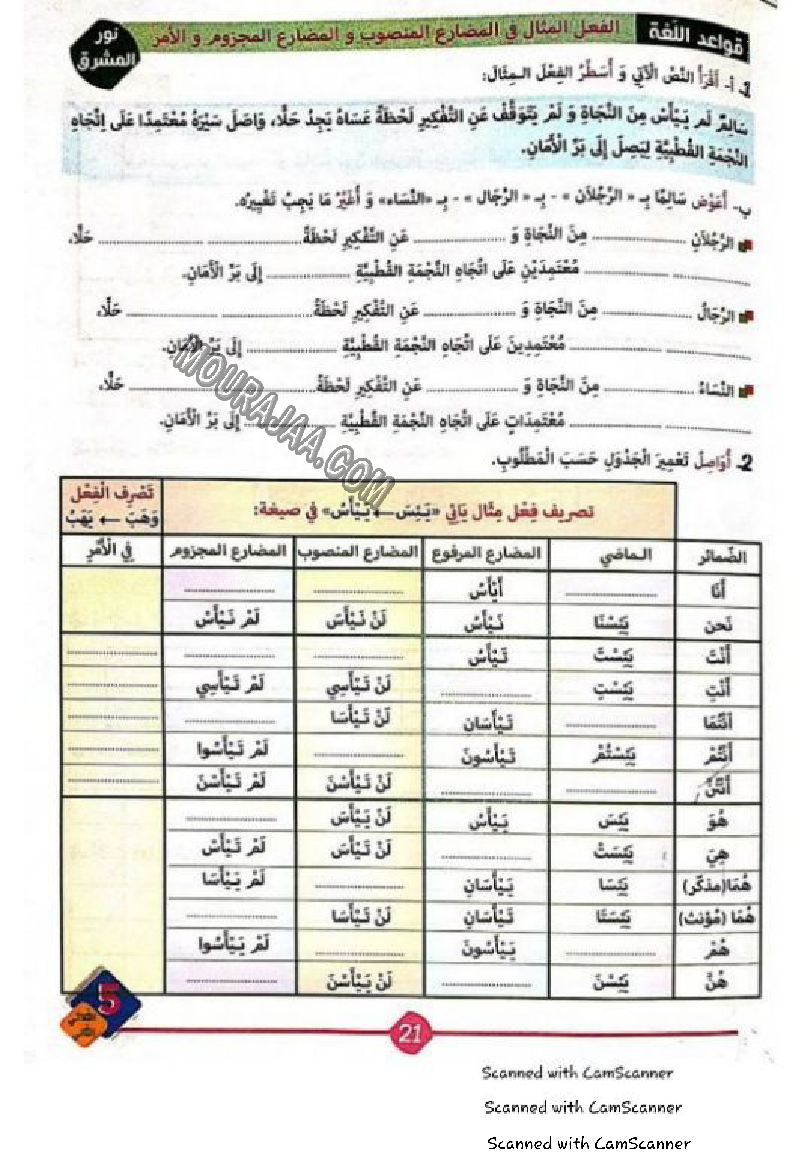 قواعد اللّغة
الفعل المثال في المضارع المنصوب و المضارع المجزوم و الأمر
نور المشرق
1. أ- أَقْرَأُ النَّصَّ الْآتِي وَ أُسَطِّرُ الفِعْلَ الـمِثَالَ:
سَالِمٌ لَمْ يَـيْأَسْ مِنَ النَّجَاةِ وَ لَمْ يَتَوَقَّفْ عَنِ التَّفْكِيرِ لَحْظَةً عَسَاهُ يَجِدُ حَلًّا، وَاصَلَ سَيْرَهُ مُعْتَمِدًا عَلَى اتِّجَاهِ
النَّجْمَةِ القُطْبِيَّةِ لِيَصِلَ إِلَى بَرِّ الْأَمَانِ.
ب- أُعَوِّضُ سَالِمًا بِـ « الرَّجُلَانِ » - بِـ « الرِّجَال » - بِـ «النِّسَاء» وَ أُغَيِّرُ مَا يَجِبُ تَغْيِيرُه.
الرَّجُلَانِ ........................ مِنَ النَّجَاةِ وَ ........................ عَنِ التَّفْكِيرِ لَحْظَةً........................ ........................ حَلًّا،
........................ ........................ مُعْتَمِدَيْنِ عَلَى اتِّجَاهِ النَّجْمَةِ القُطْبِيَّةِ ........................ إِلَى بَرِّ الْأَمَانِ.
الرِّجَالُ ........................ مِنَ النَّجَاةِ وَ ........................ عَنِ التَّفْكِيرِ لَحْظَةً........................ ........................ حَلًّا،
........................ ........................ مُعْتَمِدِينَ عَلَى اتِّجَاهِ النَّجْمَةِ القُطْبِيَّةِ ........................ إِلَى بَرِّ الْأَمَانِ.
النِّسَاءُ ........................ مِنَ النَّجَاةِ وَ ........................ عَنِ التَّفْكِيرِ لَحْظَةً........................ ........................ حَلًّا،
........................ ........................ مُعْتَمِدَاتٍ عَلَى اتِّجَاهِ النَّجْمَةِ القُطْبِيَّةِ ........................ إِلَى بَرِّ الْأَمَانِ.
MOURAJAA.COM
2. أُوَاصِلُ تَعْمِيرَ الْجَدْوَلِ حَسَبَ الْمَطْلُوبِ.
تصريف فِعْل مِثَال يَائِي «يَـئِسَ ← يَـيْأَسُ» في صيغة:
تَصْرِف الْفِعْل
وَهَبَ ← يَهَبُ
الضّمائر الـماضي المضارع المرفوع المضارع المنصوب المضارع المجزوم في الْأَمْرِ
أَنَا ........................ أَيْأَسُ ........................ ........................
نَحن يَئِسْنَا نَـيْأَسُ لَنْ نَـيْأَسَ لَمْ نَـيْأَسْ
أَنْتَ يَئِسْتَ تَـيْأَسُ ........................ ........................ ........................
أَنْتِ يَئِسْتِ ........................ لَنْ تَـيْأَسِي لَمْ تَـيْأَسِي ........................
أَنْتُمَا ........................ تَـيْأَسَانِ لَنْ تَـيْأَسَا ........................ ........................
أَنْتُمْ يَئِسْتُمْ تَـيْأَسُونَ ........................ لَمْ تَـيْأَسُوا ........................
أَنْتُنَّ ........................ ........................ لَنْ تَـيْأَسْنَ لَمْ تَـيْأَسْنَ ........................
هُوَ يَئِسَ يَـيْأَسُ لَنْ يَـيْأَسَ ........................
هِيَ يَئِسَتْ ........................ لَنْ تَـيْأَسَ لَمْ تَـيْأَسْ
هُمَا(مذكّر) يَئِسَا يَـيْأَسَانِ ........................ لَمْ يَـيْأَسَا
هُمَا (مُؤنث) يَئِسَتَا تَـيْأَسَانِ لَنْ تَـيْأَسَا ........................
هُمْ ........................ يَـيْأَسُونَ ........................ لَمْ يَـيْأَسُوا
هُنَّ يَئِسْنَ ........................ لَنْ يَـيْأَسْنَ ........................
5
21
Scanned with CamScanner
Scanned with CamScanner
Scanned with CamScanner